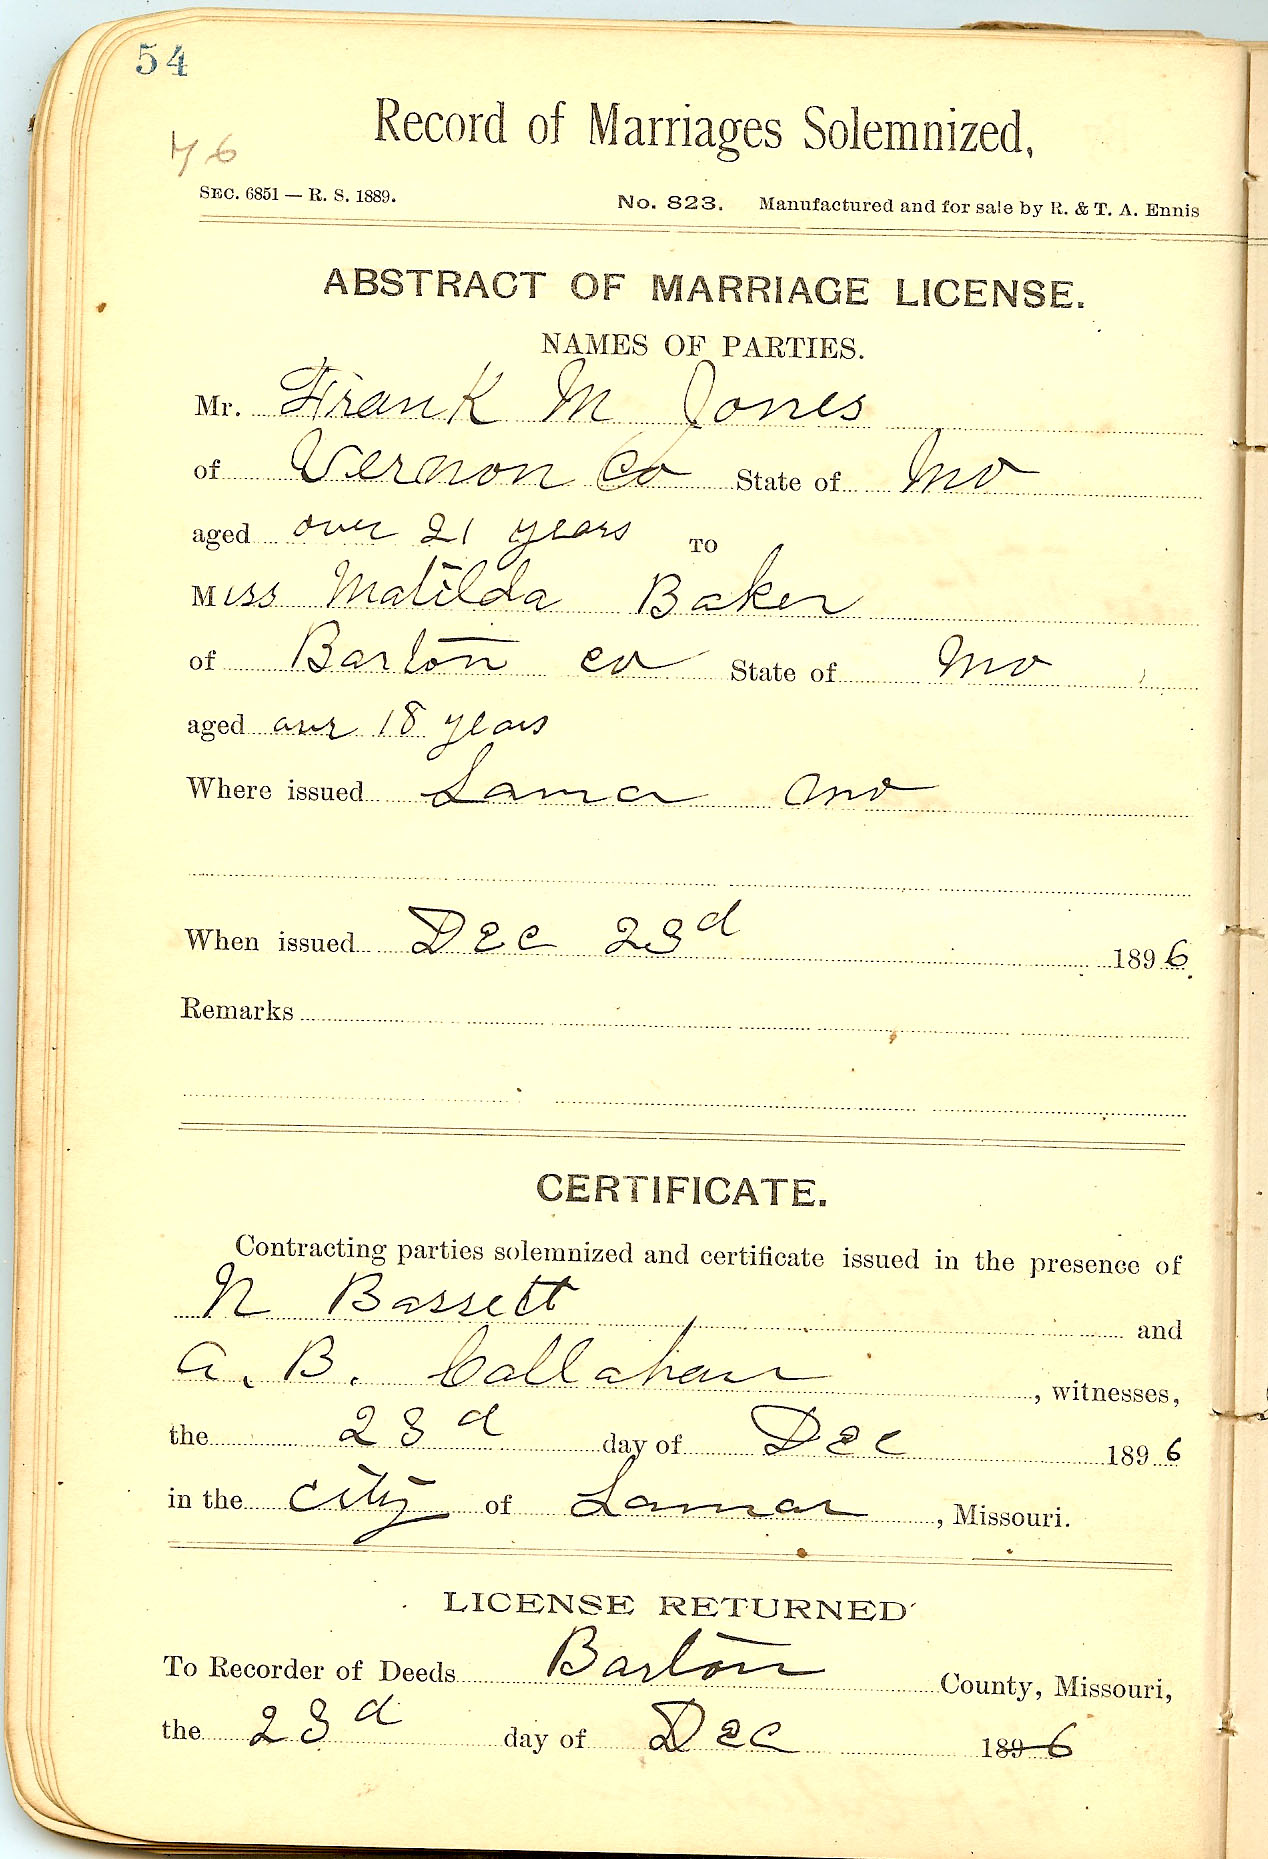 54
Record of Marriages Solemnized,
76
SEC. 6851 — R. S. 1889. No. 823. Manufactured and for sale by R. & T. A. Ennis
ABSTRACT OF MARRIAGE LICENSE.
NAMES OF PARTIES.
Mr. Frank M Jones
of Vernon Co State of Mo
aged over 21 years TO
Miss Matilda Baker
of Barton co State of Mo
aged over 18 years
Where issued Lamar Mo
When issued Dec 23d 1896
Remarks
CERTIFICATE.
Contracting parties solemnized and certificate issued in the presence of
N Bassett and
A. B. Callahan , witnesses,
the 23d day of Dec 1896
in the city of Lamar , Missouri.
LICENSE RETURNED
To Recorder of Deeds Barton County, Missouri,
the 23d day of Dec 1896